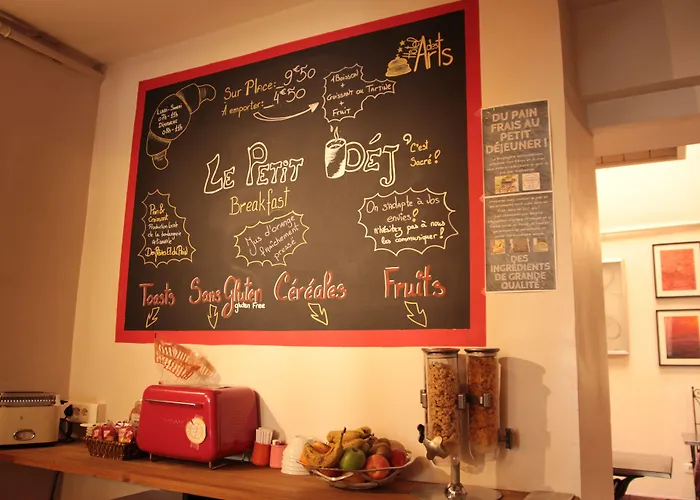 Sur Place: 9€50
A emporter: 4€50
1 Boisson
+
Croissant ou Tartine
+
Fruit
des
Arts
Le Petit Déj'
C'est
Sacré !
Breakfast
Pain &
Croissant
de la boulangerie
Jus d'orange
fraîchement
pressé
On s'adapte à vos
envies !
N'hésitez pas à nous
les communiquer !
Toasts
Sans Gluten
gluten Free
Céréales
Fruits
DU PAIN
FRAIS AU
PETIT
DÉJEUNER !
DES
INGRÉDIENTS
DE GRANDE
QUALITÉ !